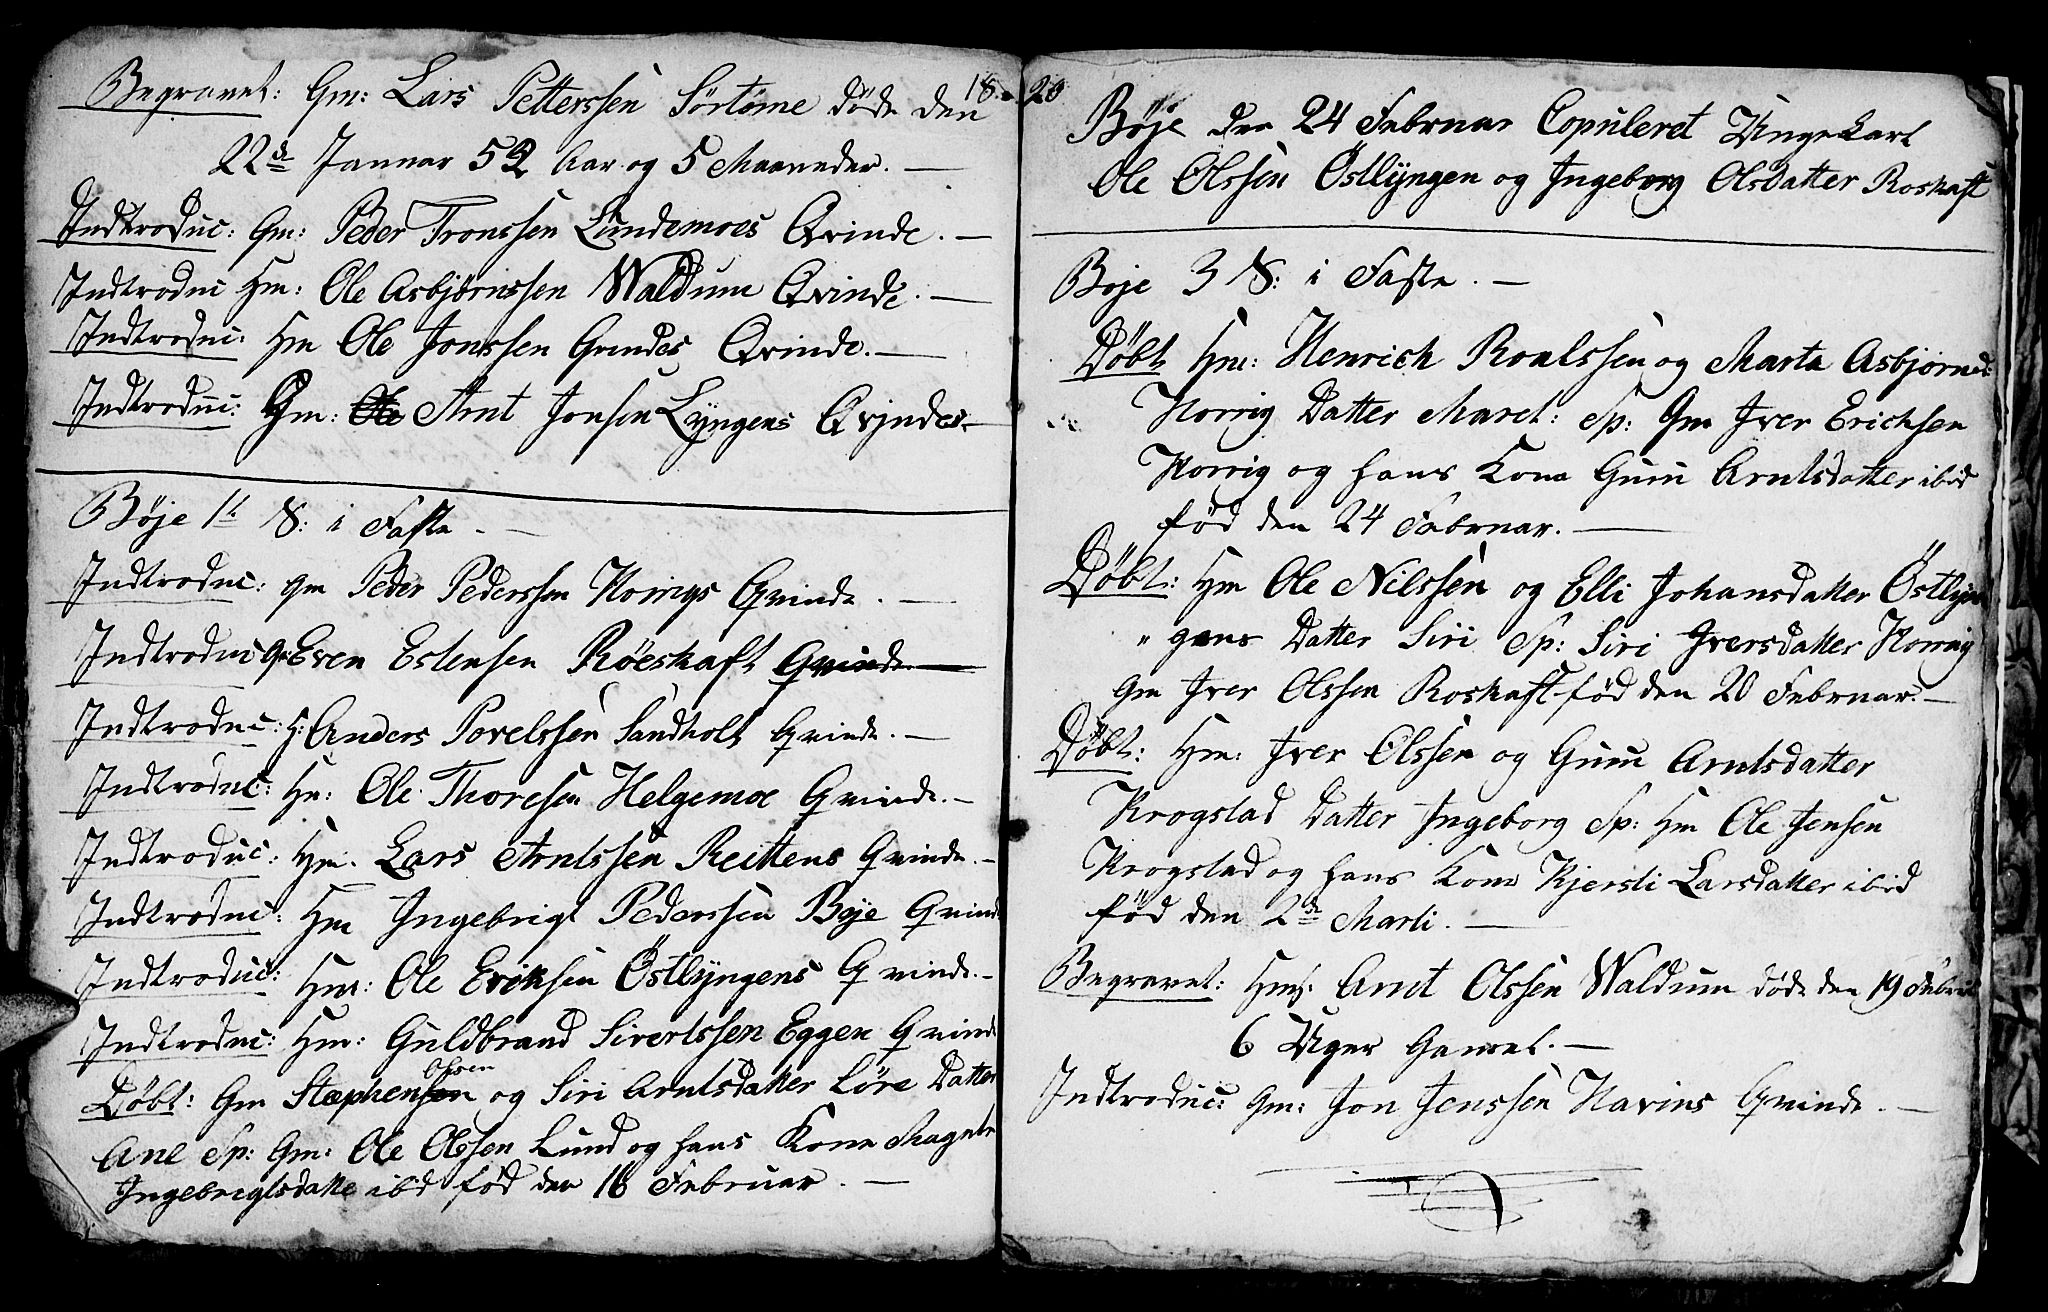 18 20
Begravet: Gm: Lars Petterssen Sörtöme döde den
22de Januar 52 Aar og 5 Maaneder. —
Indtroduc: Gm: Peder Tronssen Lundemoes Qvinde. —
Indtroduc Hm: Ole Asbjørnssen Waldum Qvinde. —
Indtroduc: Hm Ole Jonssen Grendes Qvinde. —
Indtroduc: Gm: Ole Arnt Jonsen Lÿngens Qvinde. —
Böje 1te S: i Faste —
Indtroduc: Gm Peder Pederssen Horrigs Qvinde. —
Indtroduc Gm Even Estensen Röeskaft Qvinde. —
Indtroduc: H: Anders Povelssen Sandholt Qvinde. —
Indtroduc: Hm: Ole Thoresen Helgemoe Qvinde. —
Indtroduc: Hm. Lars Arntssen Reittens Qvinde. —
Indtroduc: Hm Ingebrigt Pederssen Böje Qvinde
Indtroduc: Hm: Ole Eriksen Östlÿngens Qvinde. —
Indtroduc: Hm: Guldbrand Sivertssen Eggen Qvinde
Döbt: Gm Stæphensen Olsen og Siri Arntsdatter Löre Datter
Ane Sp: Gm: Ole Olssen Lund og hans Kone Magnte
Ingebrigtsdatte ibd föd den 16 Februar. —
Böje den 24 Februar Copuleret Ungekarl
Ole Olssen Östlÿngen og Ingeborg Olsdatter Roskaft
Böje 3 S: i Faste. —
Döbt Hm: Henrich Roalssen og Marta Asbjornsd:
Horrig Datter Maret: Sp: Gm Iver Erichsen
Horrig og hans Kone Guru Arntsdatter ibid
föd den 24 Februar. —
Döbt: Hm Ole Nilssen og Elli Johansdatter Östlÿn
" gens Datter Siri Sp: Siri Iversdatter Horrig
Gm Iver Olssen Roskaft föd den 20 Februar. —
Döbt: Hm: Iver Olssen og Guru Arntsdatter
Krogstad Datter Ingeborg Sp: Hm Ole Jensen
Krogstad og hans Kone Kjersti Larsdatter ibid
föd den 2de Marti. —
Begravet: Hms: Arnt Olssen Waldum döde den 19 Februar
6 Uger Gamel. —
Indtroduc: Gm: Jon Jenssen Havins Qvinde. —